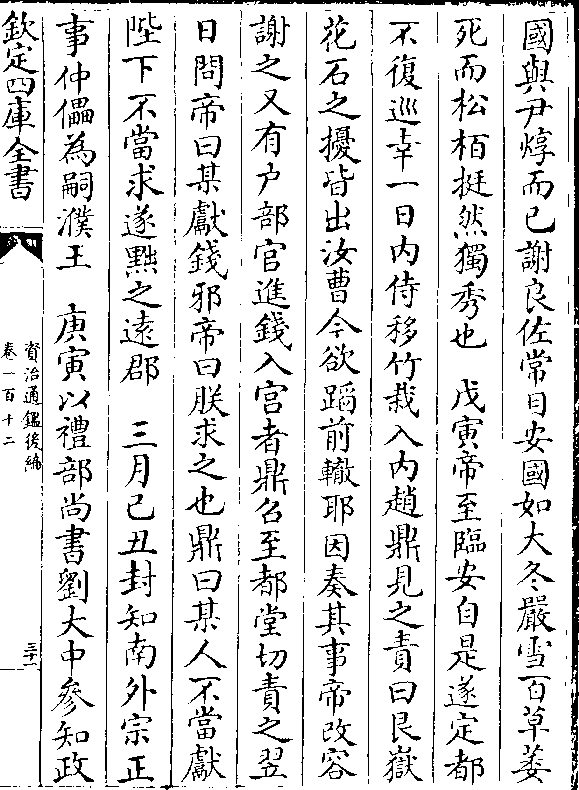 國與尹焞而已謝良佐常曰安國如大冬嚴雪百草萎
死而松栢挺然獨秀也　戊寅帝至臨安自是遂定都
不復巡幸一日内侍移竹栽入内趙鼎見之責曰艮嶽
花石之擾皆出汝曹今欲蹈前轍耶因奏其事帝改容
謝之又有户部官進錢入宫者鼎召至都堂切責之翌
日問帝曰某獻錢邪帝曰朕求之也鼎曰某人不當獻
陛下不當求遂黜之遠郡　三月己丑封知南外宗正
事仲儡為嗣濮王　庚寅以禮部尚書劉大中參知政
欽定四庫全書
資治通鑑後編
卷一百十二
三十